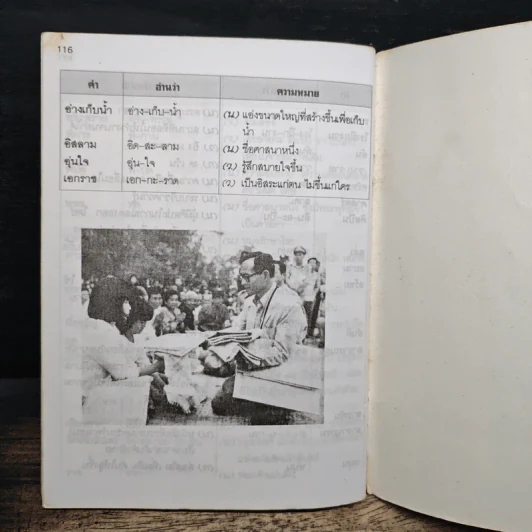 116
คำ อ่านว่า ความหมาย
อ่างเก็บน้ำ อ่าง-เก็บ-น้ำ (น) แอ่งขนาดใหญ่ที่สร้างขึ้นเพื่อเก็บ
น้ำ
อิสลาม อิด-สะ-ลาม (น) ชื่อศาสนาหนึ่ง
อุ่นใจ อุ่น-ใจ (ว) รู้สึกสบายใจขึ้น
เอกราช เอก-กะ-ราด (ว) เป็นอิสระแก่ตน ไม่ขึ้นแก่ใคร